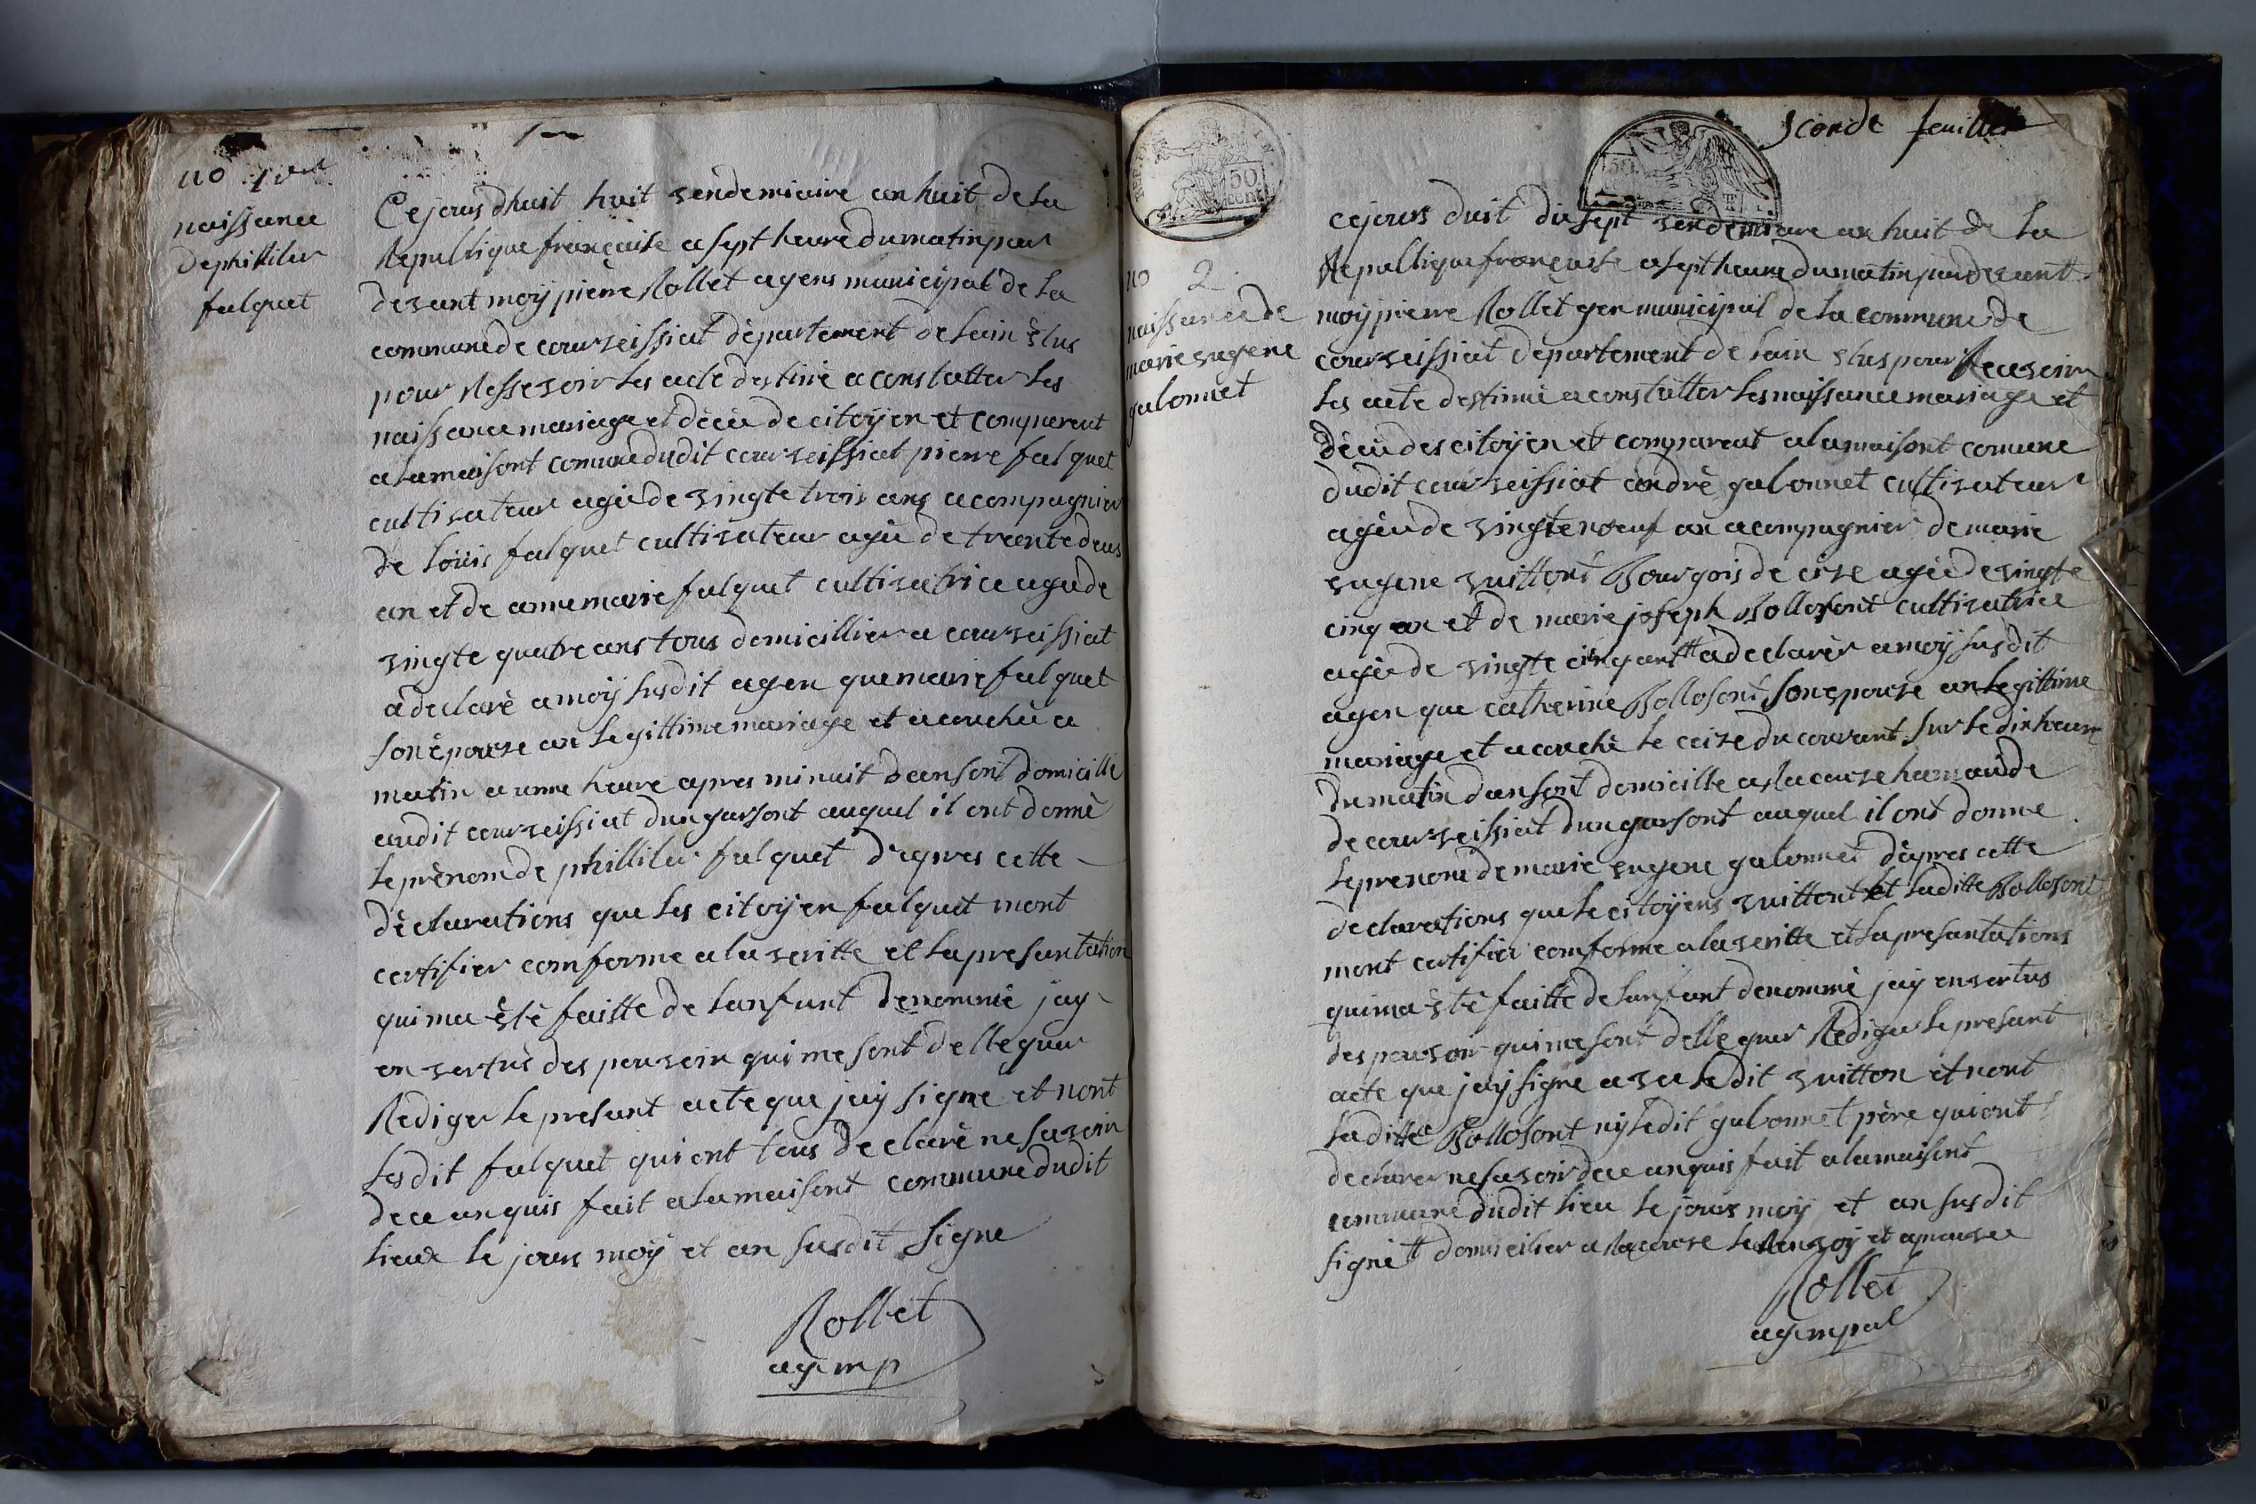 no 1er
naissance
de philliber
falquet
Cejours dhuit huit vendemiaire an huit de la
Republique française a sept heure du matin par
devant moÿ pierre Rollet agens municipal de la
commune de courveissiat département de lain élus
pour Ressevoir les acte destiné a constatter les
naissance mariage et décée de citoÿen et comparent
a la maisont comune dudit courveissiat pierre falquet
cultivateur agée de vingte trois ans acompagnier
de louis falquet cultivateur agée de trente deus
an et de anne marie falquet cultivatrice agée de
vingte quatre ans tous domicillier a courveissiat
à declaré a moÿ susdit agen que marie falquet
son épouze an legittime mariage et acouchée a
matin a unne heure apres minuit dans sont domicille
audit courveissiat dun garsont auquel il ont donné
le prénom de philliber falquet d'apres cette
déclarations que les citoÿen falquet mont
certifier comforme a la veritte et la presantation
qui ma été faitte de lanfant denommé jay
en vertus des pouvoir qui me sont delleguer
Rediger le presant acte que jaÿ signe et nont
lesdit falquet qui ont tous declaré ne savoir
de ce anquis fait a la maisont commune dudit
lieux le jours moÿ et an susdit signe
Rollet
ag. mp
50
cent
sconde feuille
50
no 2
naissance de
marie eugene
galonnet
cejours duit dix sept vendemiare an huit de la
Republique française a sept heure du matin par devant
moÿ pierre Rollet gen municipal de la commune de
courveissiat departement de lain elus pour Recevoir
les acte destinné a constatter les naissance mariage et
décée des citoÿen et comparent a la maisont comune
dudit courveissiat andrè galonnet cultivateur
agée de vingte noeuf an acompagnier de marie
eugene vuittont Bourgois de cize agée de vingte
cinq an et de marie joseph Bollosont cultivatrice
agée de vingte cinq ans # à declarér a moÿ susdit
agen que catherine Bollosont son epouze an legittime
mariage et acouché le ceize du courant sur le dix heure
du matin dan sont domicille a la couze hamaude
de courveissiat dun garsont auquel il ont donne
le prenom de marie eugene galonnet dèpres cette
declarations que le citoÿens vuittont et laditte Bollosont
mont certifier comforme a la veritte et la presantations
qui ma été faitte de lanfant denommé jaÿ en vertus
des pouvoir qui me sont delleguer Rediger le presant
acte que jaÿ signe avec ledit vuitton et nont
laditte Bollosont nÿ ledit galonnet père qui ont
declarer ne savoir de ce anquis fait a la maisont
commune dudit lieu le jours moÿ et an susdit
signé # domicilier a la couze
Rollet
ag. mpal